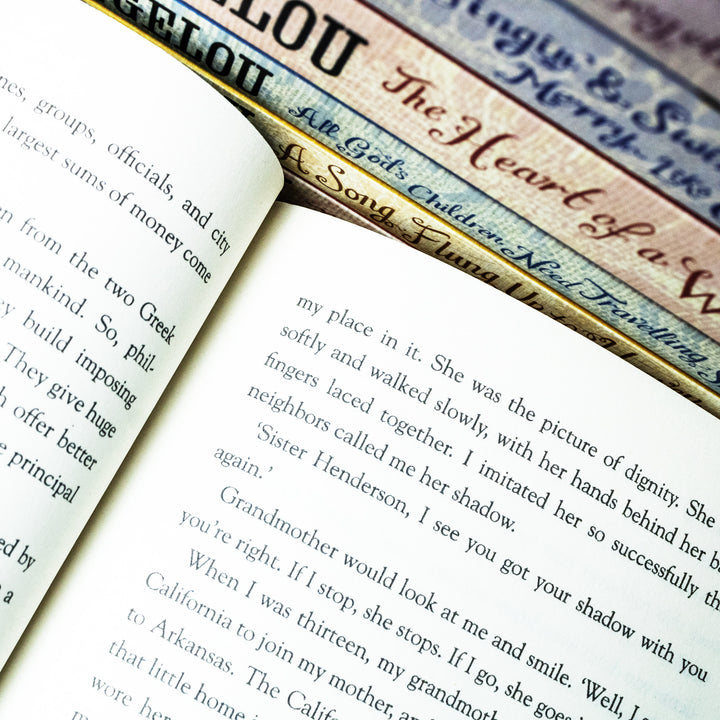 ANGELOU
ANGELOU
Singin' & Swin
Merry Like C
The Heart of a W
All God's Children Need Travelling S
A Song Flung Up to H
nes, groups, officials, and city
largest sums of money come
en from the two Greek
mankind. So, phil-
ey build imposing
They give huge
h offer better
e principal
ed by
a
my place in it. She was the picture of dignity. She
softly and walked slowly, with her hands behind her ba
fingers laced together. I imitated her so successfully th
neighbors called me her shadow.
'Sister Henderson, I see you got your shadow with you
again.'
Grandmother would look at me and smile. 'Well, I
you're right. If I stop, she stops. If I go, she goes
When I was thirteen, my grandmother
California to join my mother, and
to Arkansas. The Calif
that little home i
wore her